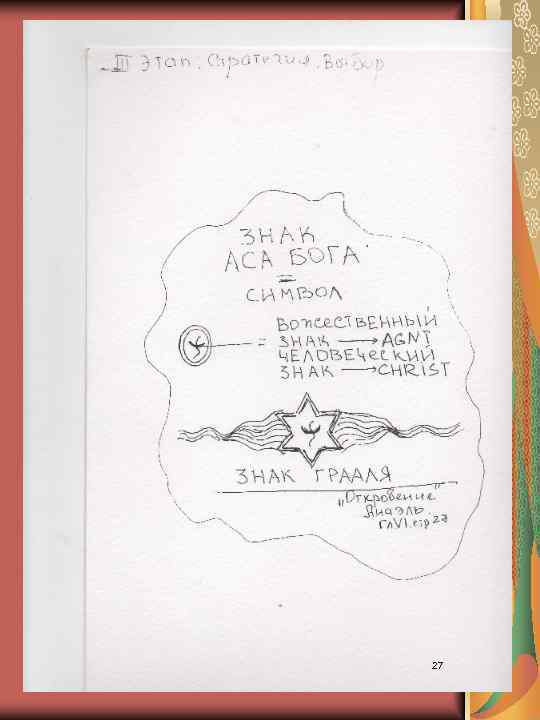 III Этап. Стратегия. Выбор
ЗНАК
АСА БОГА
=
СИМВОЛ
= БОЖЕСТВЕННЫЙ
ЗНАК → AGNI
ЧЕЛОВЕЧЕСКИЙ
ЗНАК → CHRIST
ЗНАК ГРААЛЯ
„Откровение"
Анаэль.
ГлVI. стр 27
27